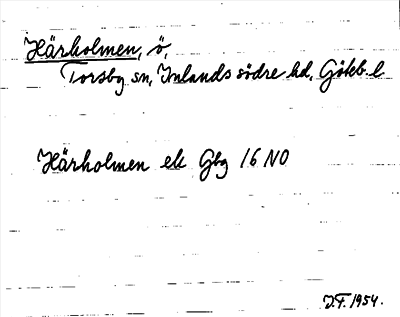 Härholmen, ö,
Torsby sn, Inlands södre hd, Göteb. l
Härholmen ek Gbg 16 NO
J.F. 1954.